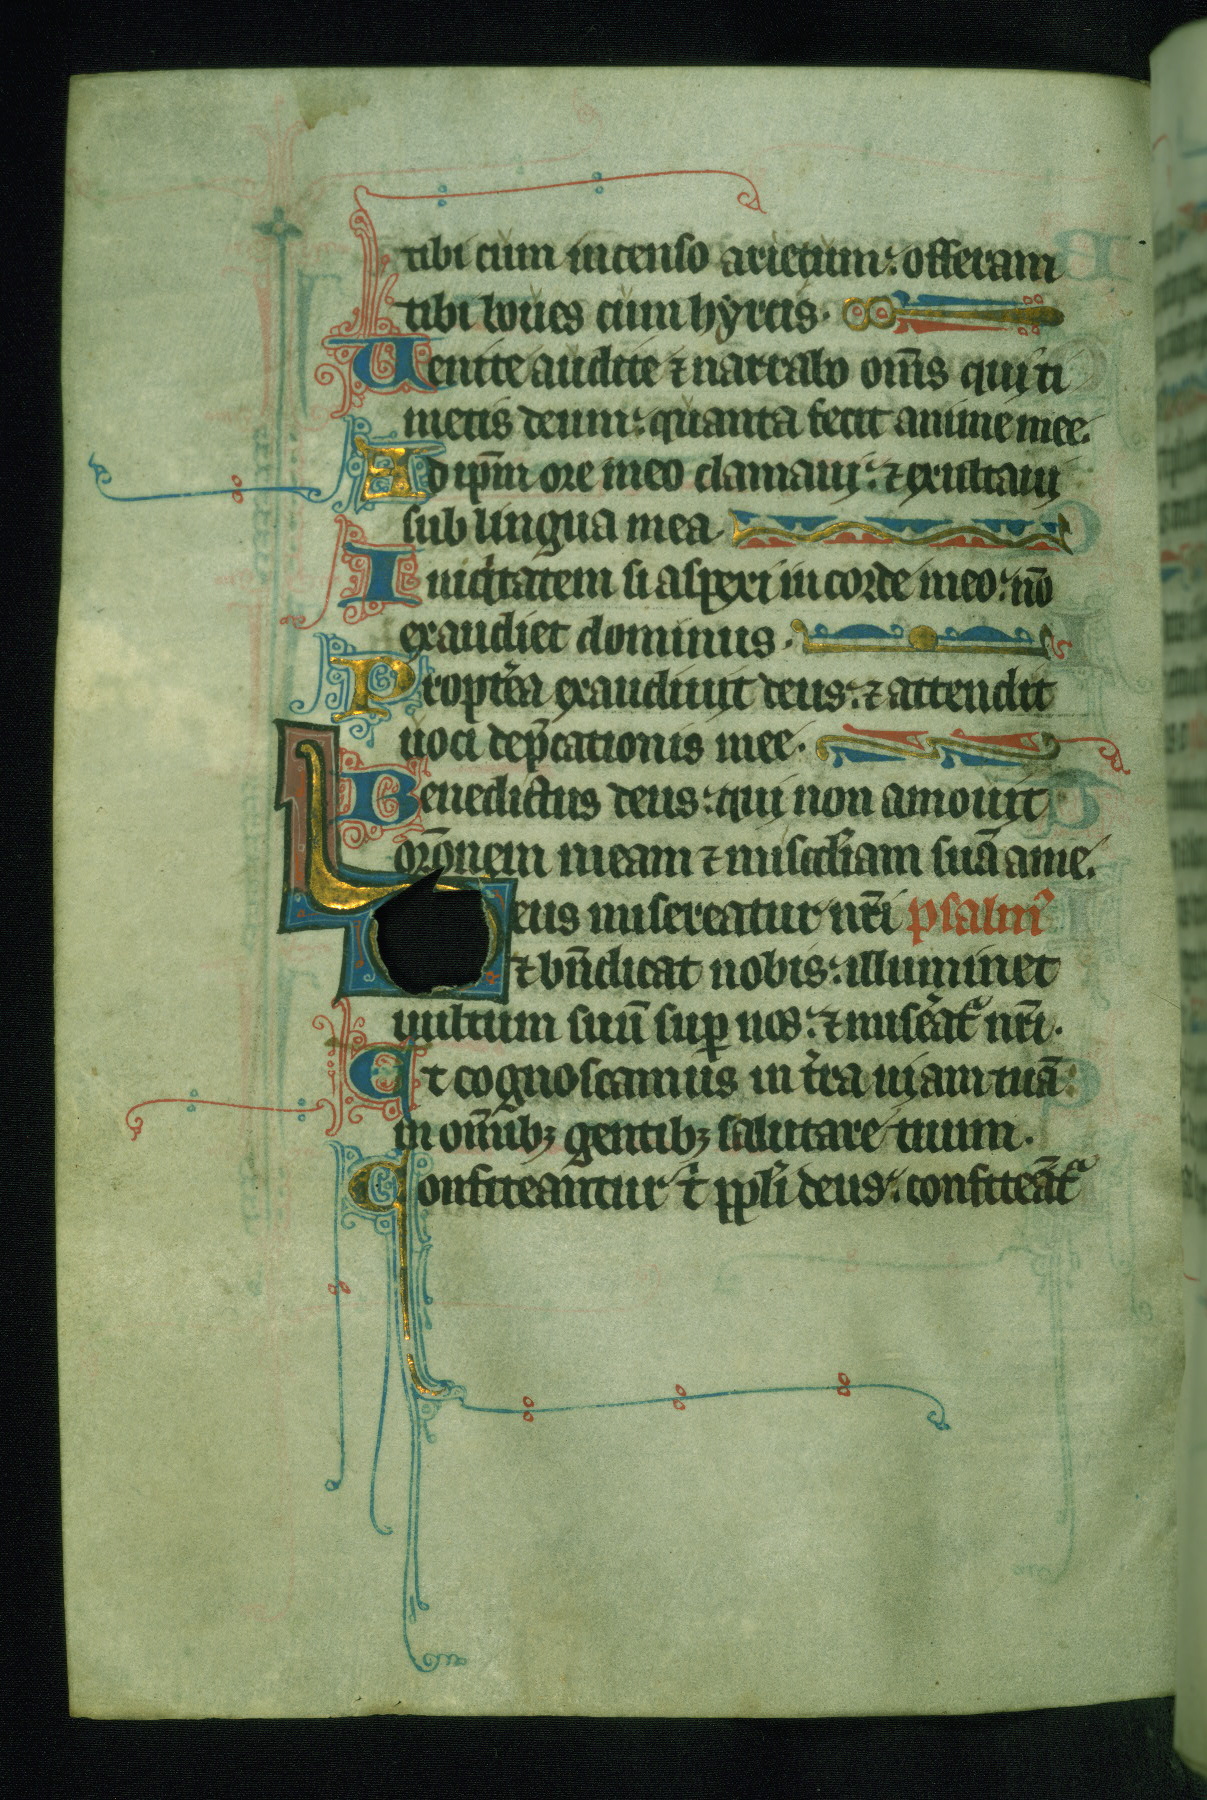 tibi cum incenso arietum: offeram
tibi boues cum hyrcis.
Uenite audite ⁊ narrabo om̄s qui ti
metis deum: quanta fecit anime mee.
Ad ip̄m ore meo clamaui: ⁊ exultaui
sub lingua mea.
Iniq̇tatem si aspexi in corde meo: nō
exaudiet dominus.
Propt̃ea exaudiuit deus: ⁊ attendit
uoci dep̃cationis mee.
Benedictus deus: qui non amouit
or̄onem meam ⁊ misc̃diam suā a me.
eus misereatur nr̄i psalm᷒
⁊ bn̄dicat nobis: illuminet
uultum suū suꝑ nos: ⁊ mise᷒at᷒ nr̄i.
Et cognoscamus in t̃ra uiam tuā:
in om̄ib; gentib; salutare tuum.
Confiteantur t̄ ppl̃i deus: confiteāt᷒